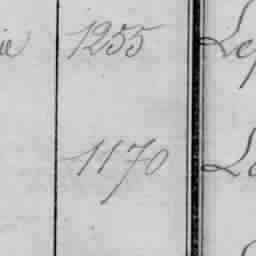 ie 1255 Le
1170 La